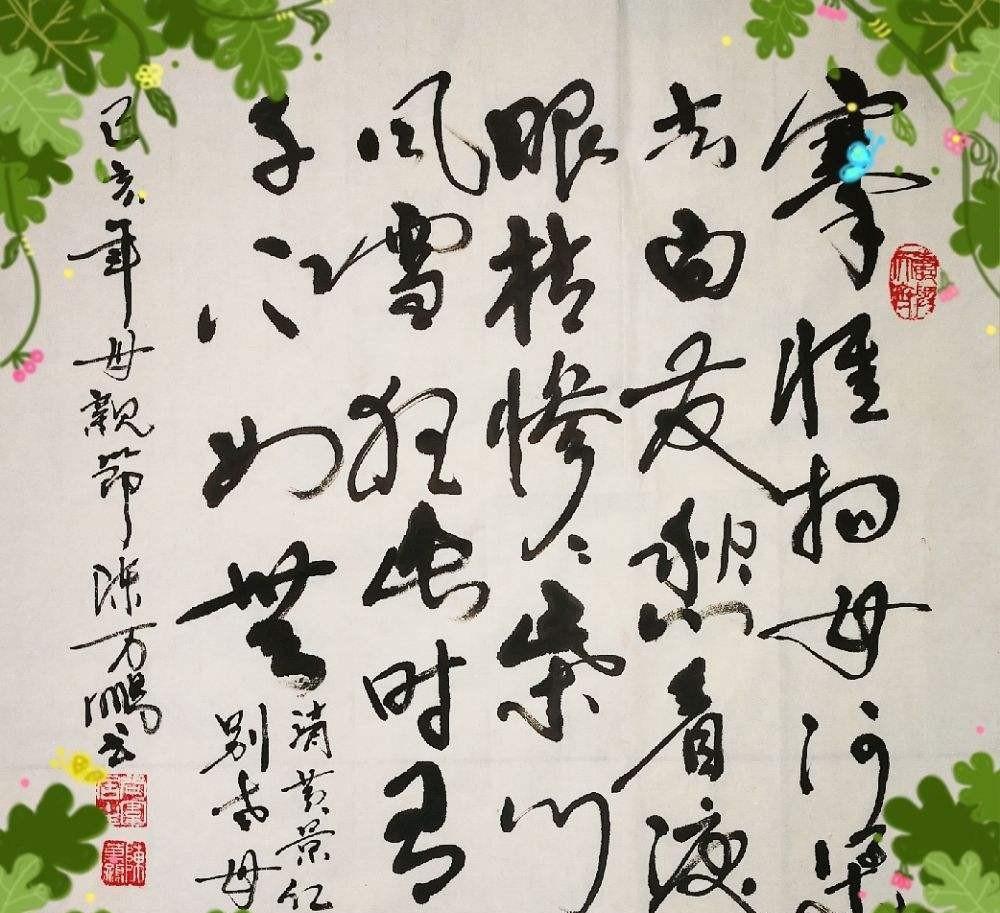 搴帷拜母河梁
去白发愁看淚
眼枯惨惨柴门
风雪夜此时有
子不如無
清黄景仁
别老母
己亥年母親節陈万鹏书